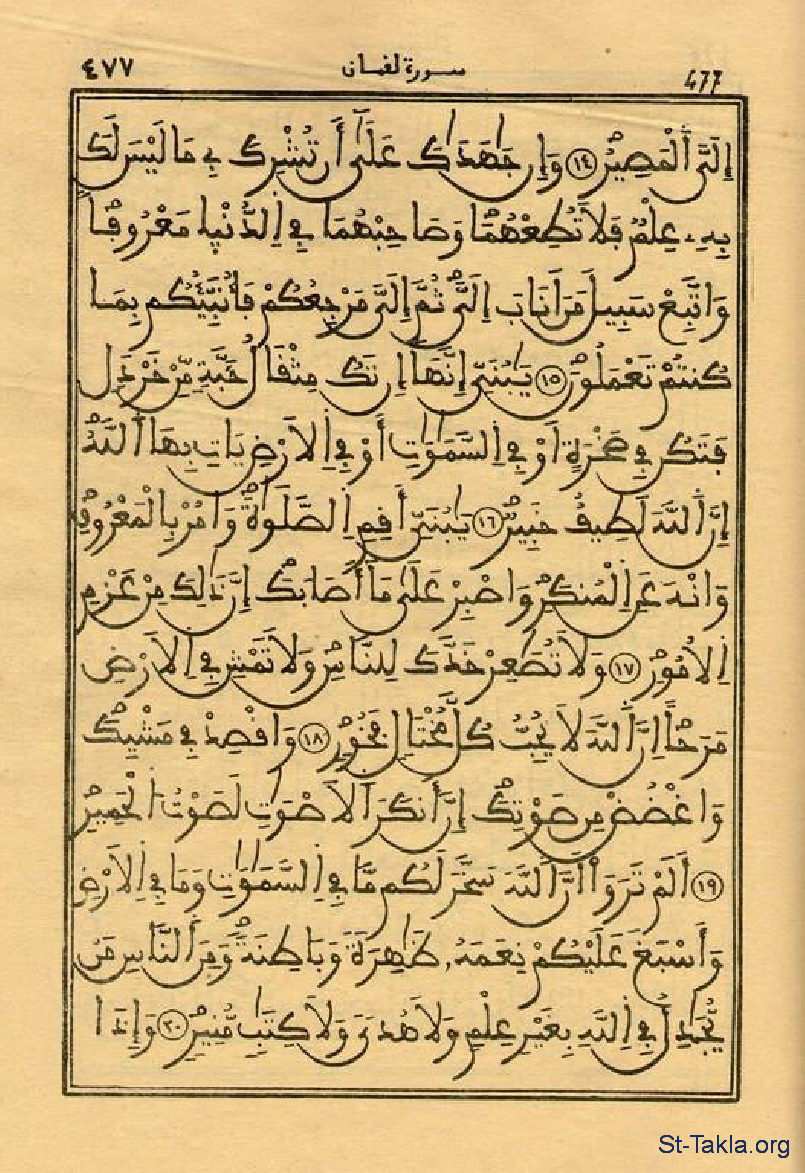 ٤٧٧ سورة لقمان 477
إِلَيَّ اَلْمَصِيرُ ١٤ وَإِن جَٰهَدَٰكَ عَلَىٰٓ أَن تُشْرِكَ بِے مَا لَيْسَ لَكَ
بِهِۦ عِلْمٌ فَلَا تُطِعْهُمَا وَصَاحِبْهُمَا فِے اِلدُّنْيَا مَعْرُوفاً
وَاتَّبِعْ سَبِيلَ مَنَ أَنَابَ إِلَيَّ ثُمَّ إِلَيَّ مَرْجِعُكُمْ فَأُنَبِّئُكُم بِمَا
كُنتُمْ تَعْمَلُونَ ١٥ يَٰبُنَيِّ إِنَّهَآ إِن تَكُ مِثْقَالُ حَبَّةٍ مِّنْ خَرْدَلٍ
فَتَكُن فِے صَخْرَةٍ أَوْ فِے اِلسَّمَٰوَٰتِ أَوْ فِے اِلَارْضِ يَاتِ بِهَا اَللَّهُ
إِنَّ اَللَّهَ لَطِيفٌ خَبِيرٌ ١٦ يَٰبُنَيِّ أَقِمِ اِلصَّلَوٰةَ وَامُرْ بِالْمَعْرُوفِ
وَانْهَ عَنِ اِلْمُنكَرِ وَاصْبِرْ عَلَىٰ مَآ أَصَابَكَ إِنَّ ذَٰلِكَ مِنْ عَزْمِ
اِلُامُورِ ١٧ وَلَا تُصَٰعِرْ خَدَّكَ لِلنَّاسِ وَلَا تَمْشِ فِے اِلَارْضِ
مَرَحاً اِنَّ اَللَّهَ لَا يُحِبُّ كُلَّ مُخْتَالٍ فَخُورٍ ١٨ وَاقْصِدْ فِے مَشْيِكَ
وَاغْضُضْ مِن صَوْتِكَ إِنَّ أَنكَرَ اَلَاصْوَٰتِ لَصَوْتُ اُلْحَمِيرِ
١٩ أَلَمْ تَرَوَاْ اَنَّ اَللَّهَ سَخَّرَ لَكُم مَّا فِے اِلسَّمَٰوَٰتِ وَمَا فِے اِلَارْضِ
وَأَسْبَغَ عَلَيْكُمْ نِعَمَهُۥ ظَٰهِرَةً وَبَاطِنَةً وَمِنَ اَلنَّاسِ مَنْ
يُّجَٰدِلُ فِے اِللَّهِ بِغَيْرِ عِلْمٍ وَلَا هُدىً وَلَا كِتَٰبٍ مُّنِيرٍ ٢٠ وَإِذَا
St-Takla.org